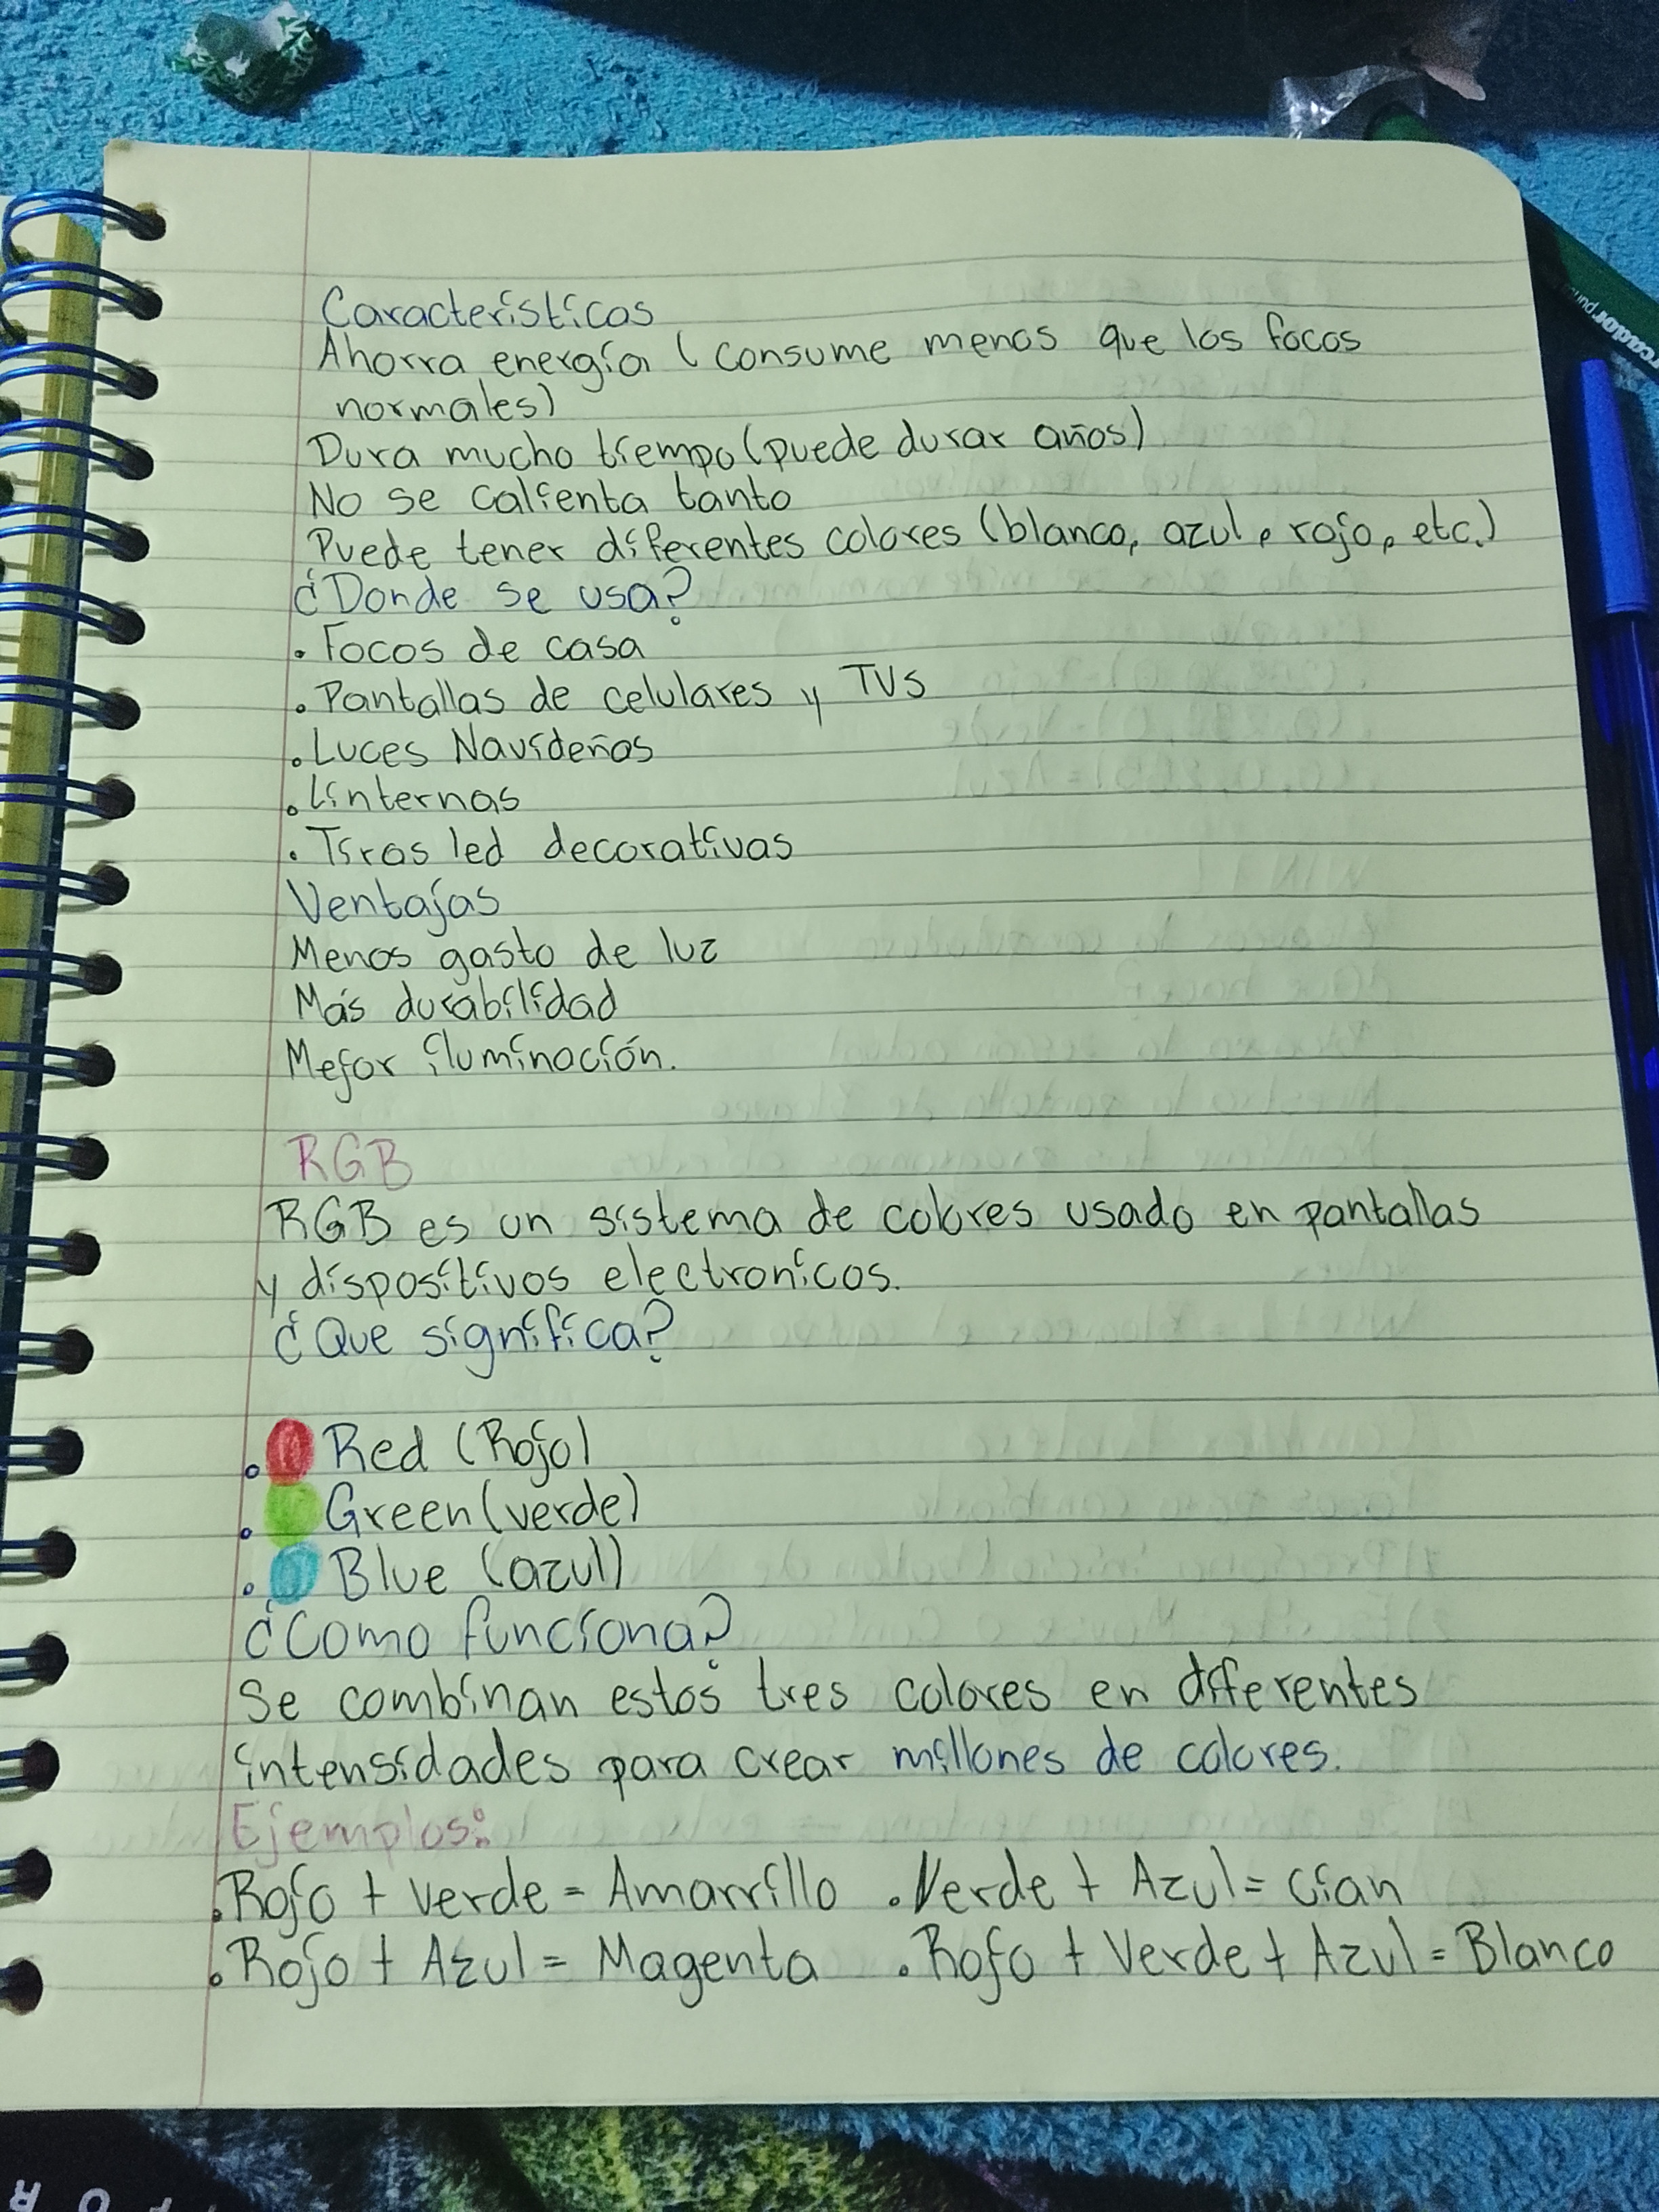 Características
Ahorra energía (consume menos que los focos
normales)
Dura mucho tiempo (puede durar años)
No se calienta tanto
Puede tener diferentes colores (blanco, azul, rojo, etc.)
¿Donde se usa?
. Focos de casa
. Pantallas de celulares y TVs
. Luces Navideñas
. Linternas
. Tiras led decorativas
Ventajas
Menos gasto de luz
Más durabilidad
Mejor iluminación.
RGB
RGB es un sistema de colores usado en pantallas
y dispositivos electronicos.
¿Que significa?
. Red (Rojo)
. Green (verde)
. Blue (azul)
¿Como funciona?
Se combinan estos tres colores en diferentes
intensidades para crear millones de colores.
Ejemplos:
. Rojo + verde = Amarrillo . Verde + Azul = Cian
. Rojo + Azul = Magenta . Rojo + Verde + Azul = Blanco